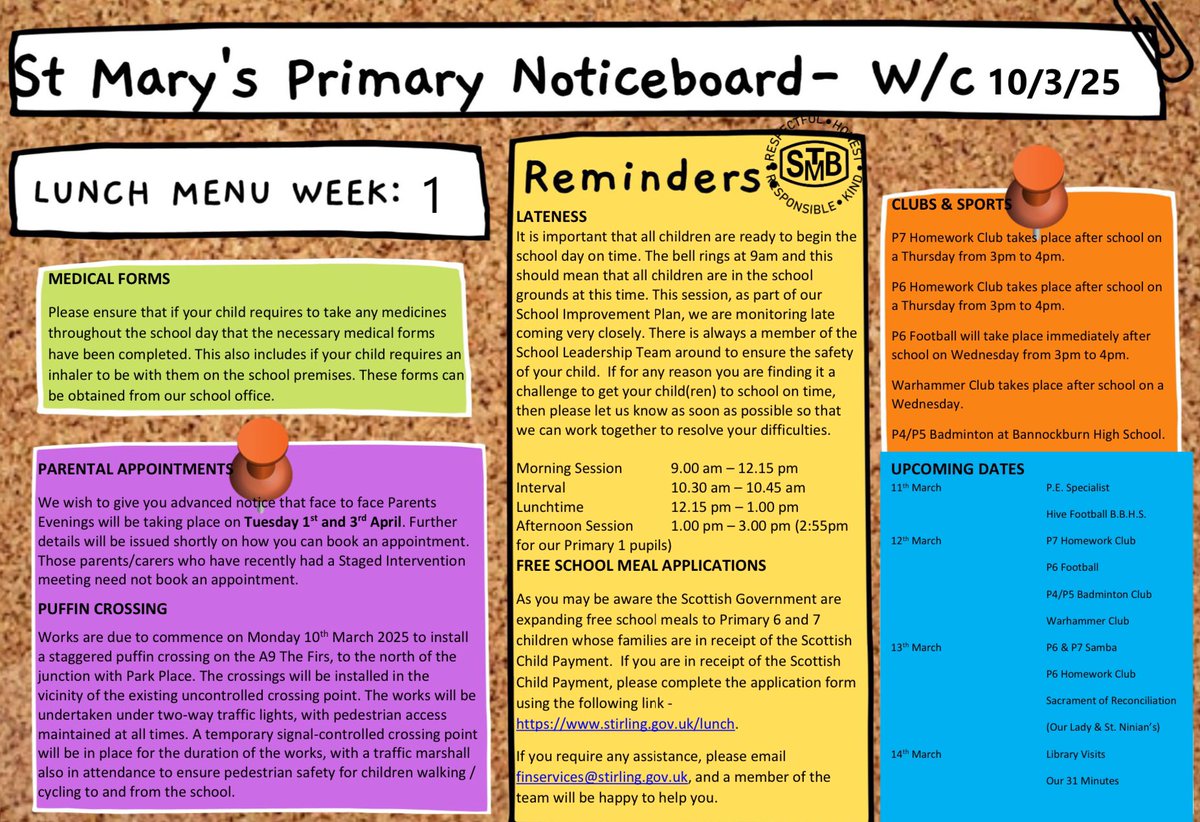 St Mary's Primary Noticeboard- W/c 10/3/25
LUNCH MENU WEEK: 1
MEDICAL FORMS
Please ensure that if your child requires to take any medicines
throughout the school day that the necessary medical forms
have been completed. This also includes if your child requires an
inhaler to be with them on the school premises. These forms can
be obtained from our school office.
PARENTAL APPOINTMENTS
We wish to give you advanced notice that face to face Parents
Evenings will be taking place on Tuesday 1st and 3rd April. Further
details will be issued shortly on how you can book an appointment.
Those parents/carers who have recently had a Staged Intervention
meeting need not book an appointment.
PUFFIN CROSSING
Works are due to commence on Monday 10th March 2025 to install
a staggered puffin crossing on the A9 The Firs, to the north of the
junction with Park Place. The crossings will be installed in the
vicinity of the existing uncontrolled crossing point. The works will be
undertaken under two-way traffic lights, with pedestrian access
maintained at all times. A temporary signal-controlled crossing point
will be in place for the duration of the works, with a traffic marshall
also in attendance to ensure pedestrian safety for children walking /
cycling to and from the school.
Reminders
RESPECTFUL • HONEST • KIND • RESPONSIBLE •
STMB
LATENESS
It is important that all children are ready to begin the
school day on time. The bell rings at 9am and this
should mean that all children are in the school
grounds at this time. This session, as part of our
School Improvement Plan, we are monitoring late
coming very closely. There is always a member of the
School Leadership Team around to ensure the safety
of your child. If for any reason you are finding it a
challenge to get your child(ren) to school on time,
then please let us know as soon as possible so that
we can work together to resolve your difficulties.
Morning Session 9.00 am – 12.15 pm
Interval 10.30 am – 10.45 am
Lunchtime 12.15 pm – 1.00 pm
Afternoon Session 1.00 pm – 3.00 pm (2:55pm
for our Primary 1 pupils)
FREE SCHOOL MEAL APPLICATIONS
As you may be aware the Scottish Government are
expanding free school meals to Primary 6 and 7
children whose families are in receipt of the Scottish
Child Payment. If you are in receipt of the Scottish
Child Payment, please complete the application form
using the following link -
https://www.stirling.gov.uk/lunch.
If you require any assistance, please email
finservices@stirling.gov.uk, and a member of the
team will be happy to help you.
CLUBS & SPORTS
P7 Homework Club takes place after school on
a Thursday from 3pm to 4pm.
P6 Homework Club takes place after school on
a Thursday from 3pm to 4pm.
P6 Football will take place immediately after
school on Wednesday from 3pm to 4pm.
Warhammer Club takes place after school on a
Wednesday.
P4/P5 Badminton at Bannockburn High School.
UPCOMING DATES
11th March P.E. Specialist
Hive Football B.B.H.S.
12th March P7 Homework Club
P6 Football
P4/P5 Badminton Club
Warhammer Club
13th March P6 & P7 Samba
P6 Homework Club
Sacrament of Reconciliation
(Our Lady & St. Ninian's)
14th March Library Visits
Our 31 Minutes